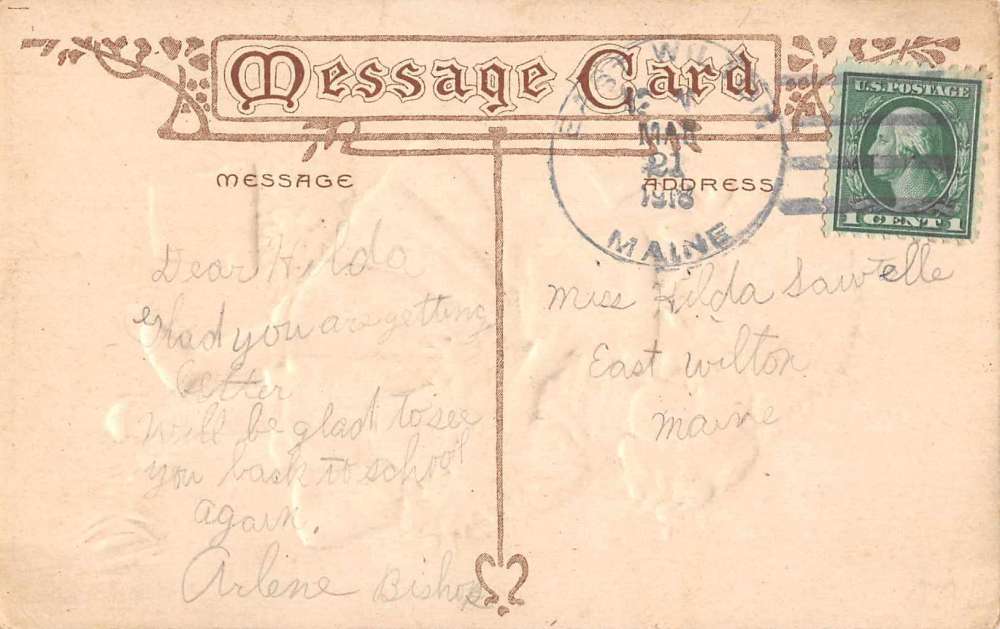 Message Card
EAST WILTON
MAR
21
1918
MAINE
U.S. POSTAGE
1 CENT 1
MESSAGE
ADDRESS
Dear Hilda
Glad you are getting
better
Will be glad to see
you back to school
again.
Arlene Bishop
Miss Hilda Sawtelle
East Wilton
Maine